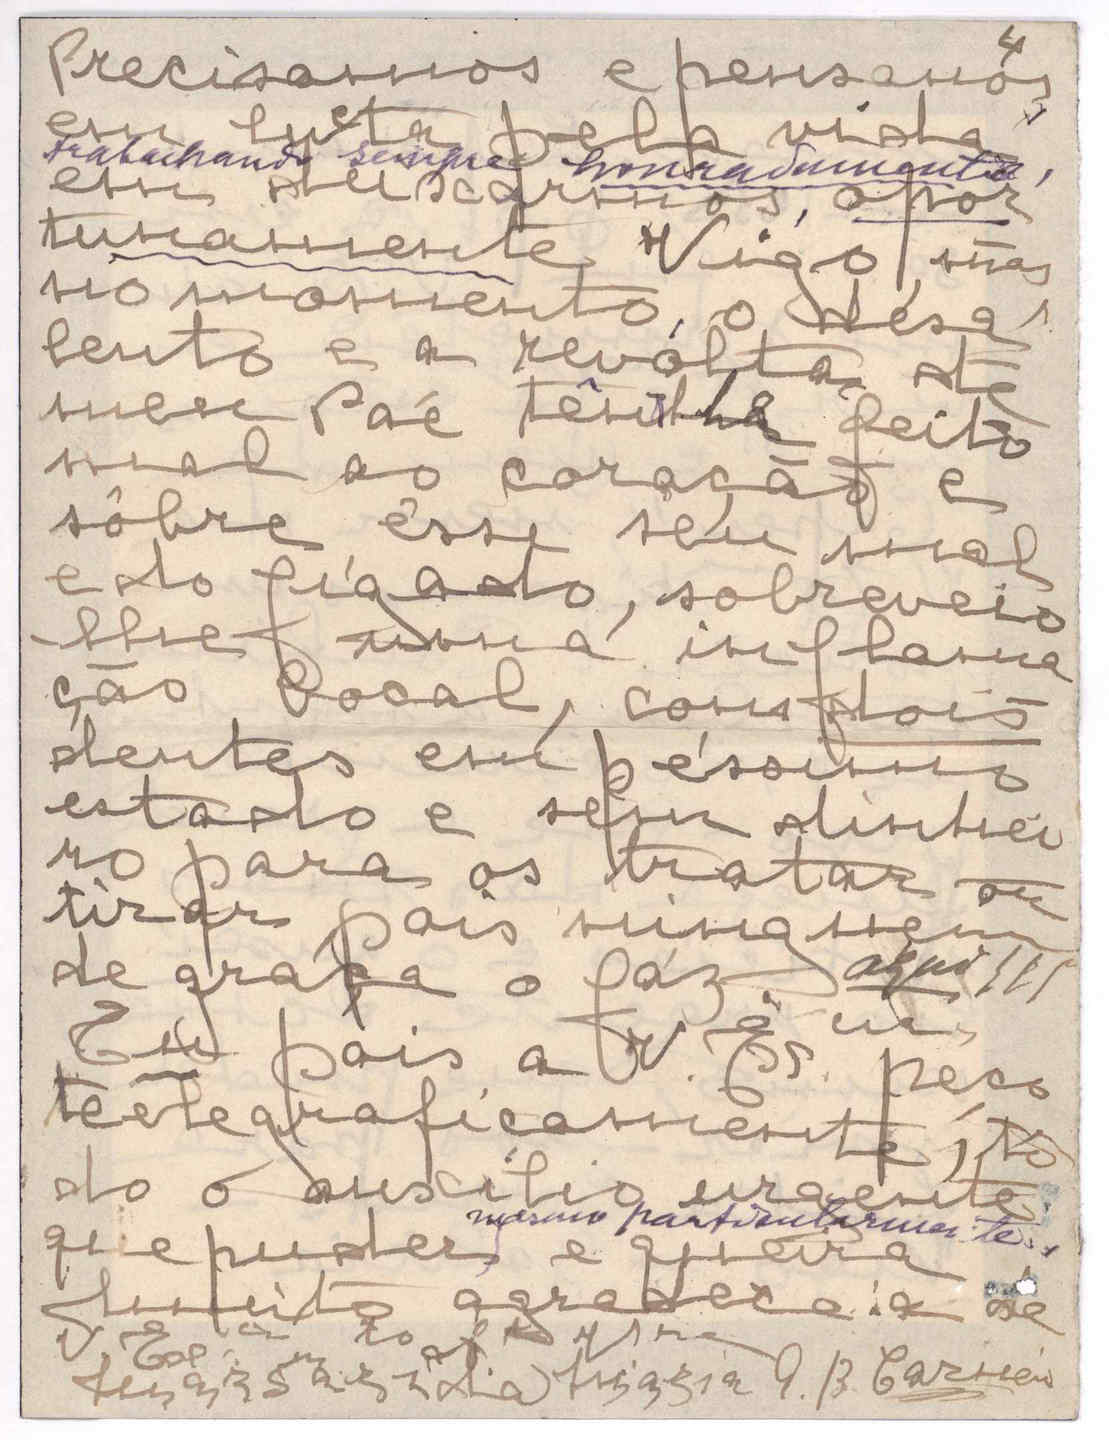 4
Precisamos e pensamos
em lucta pela vida,
trabalhando sempre honradamente,
em buscarmos, opor
tunamente Vigo, mas
no momento, o desa
lento e a revólta de
meu Paé têm lhe feito
mal ao coração e
sôbre ésse seu mal
e do fígado, sobreveio
-lhe uma inflama
ção bocal, com dois
dentes em péssimo
estado e sem dinhei
ro para os tratar ou
tirar pois ninguem
de graça o fáz aqui!!!
Eu pois a V. Ex. peço
teelegraficamente, to
do o auxílio urgente
mesmo particularmente,
que puder, e queira
Muito agradecida de
V. Ex.
Maria G. B. Carneiro